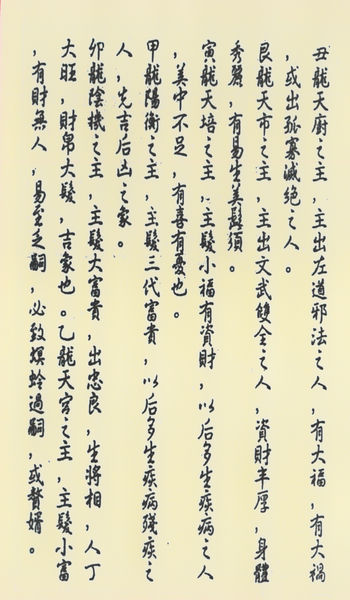 丑龍天廚之主，主出左道邪法之人，有大福，有大禍
，或出孤寡滅絕之人。
艮龍天市之主，主出文武雙全之人，資財半厚，身體
秀麗，有易生美鬚須。
寅龍天培之主，主髮小福有資財，以后多生疾病之人
，美中不足，有喜有憂也。
甲龍陽衡之主，主髮三代富貴，以后多生疾病殘疾之
人，先吉后凶之家。
卯龍陰機之主，主髮大富貴，出忠良，生將相，人丁
大旺，財帛大髮，吉家也。乙龍天官之主，主髮小富
，有財無人，易至乏嗣，必致螟蛉過嗣，或贅婿。